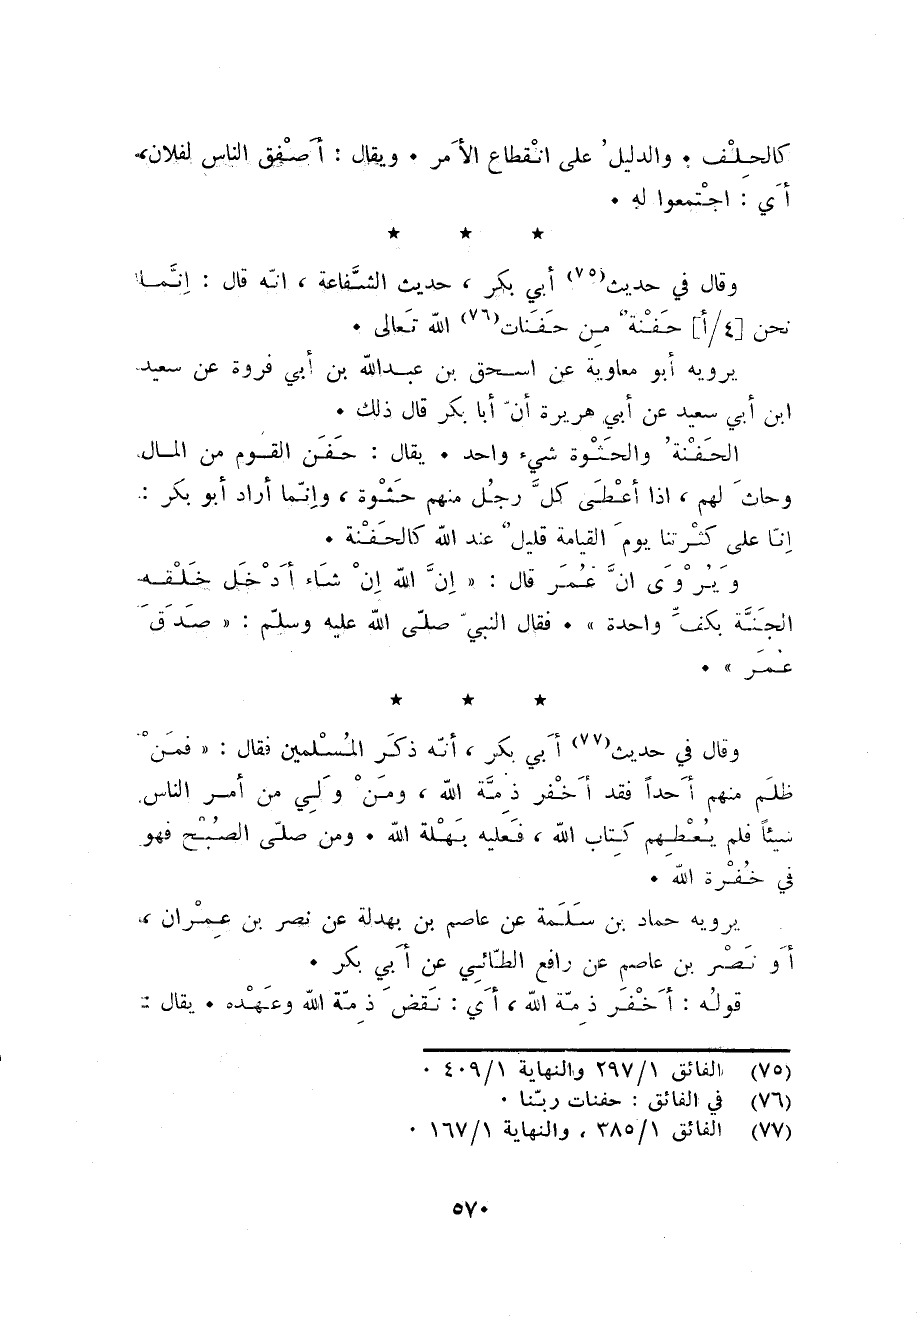 كالحِلْف • والدليلُ على انْقطاع الأَمر • ويقال : أَصْفق الناس لفلان ،
أَي : اجْتمعوا له •
★ ★ ★
وقال في حديث(٧٥) أبي بكر ، حديث الشَّفاعة ، انّه قال : إنَّمـا
نحن [٤/أ] حَفْنَة ٌ مـن حَفَنات(٧٦) الله تَعالى •
يرويه أبو معاوية عن اسـحق بن عبـدالله بن أبي فروة عن سعيد
ابن أبي سعيد عن أبي هريرة أنّ أبا بكر قال ذلك •
الحَفْنَةُ والحَثْوة شيء واحد • يقال : حَفَن القـوم من المـال
وحاثَ لهم ، اذا أعْطَى كلَّ رجلُ منهم حَثْوة ، وإنّما أراد أبو بكر :
إنّا على كثْرتنا يومَ القيامة قليلٌ عند الله كالحَفْنة •
وَيُرْوَى انَّ عُمَر قال : « إنَّ الله إنْ شاء أَدْخَل خَلْقـه
الجَنَّة بكفٍّ واحدة » • فقال النبيّ صلّى الله عليه وسلّم : « صَدَقَ
عُمَر » •
★ ★ ★
وقال في حديث(٧٧) أَبي بكر ، أنّه ذكَر المُسْلمين فقال : « فمَنْ
ظلَم منهم أَحداً فقد أَخْفر ذِمَّة الله ، ومَنْ وَلِي من أمـر الناس
شيئاً فلم يُعْطِهم كِتاب الله ، فَعليه بَهْلة الله • ومن صلّى الصُبْح فهو
في خُفْرة الله •
يرويه حماد بن سَلَمة عن عاصم بن بهدلة عن نصر بن عِمْران ،
أَو نَصْر بن عاصم عن رافع الطّائي عن أَبي بكر •
قولُه : أَخْفَر ذِمّة الله ، أَي : نَقضَ ذِمّة الله وعَهْده • يقال :
(٧٥) الفائق ٢٩٧/١ والنهاية ٤٠٩/١ •
(٧٦) في الفائق : حفنات ربّنا •
(٧٧) الفائق ٣٨٥/١ ، والنهاية ١٦٧/١ •
٥٧٠